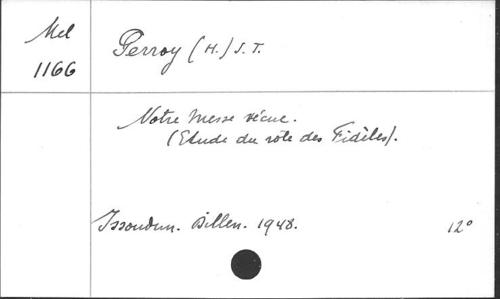 Mel
1166
Perroy (H.) S. T.
Notre Messe vécue.
(Etude du role des Fidèles).
Issoudun. Dillen. 1948.
12°